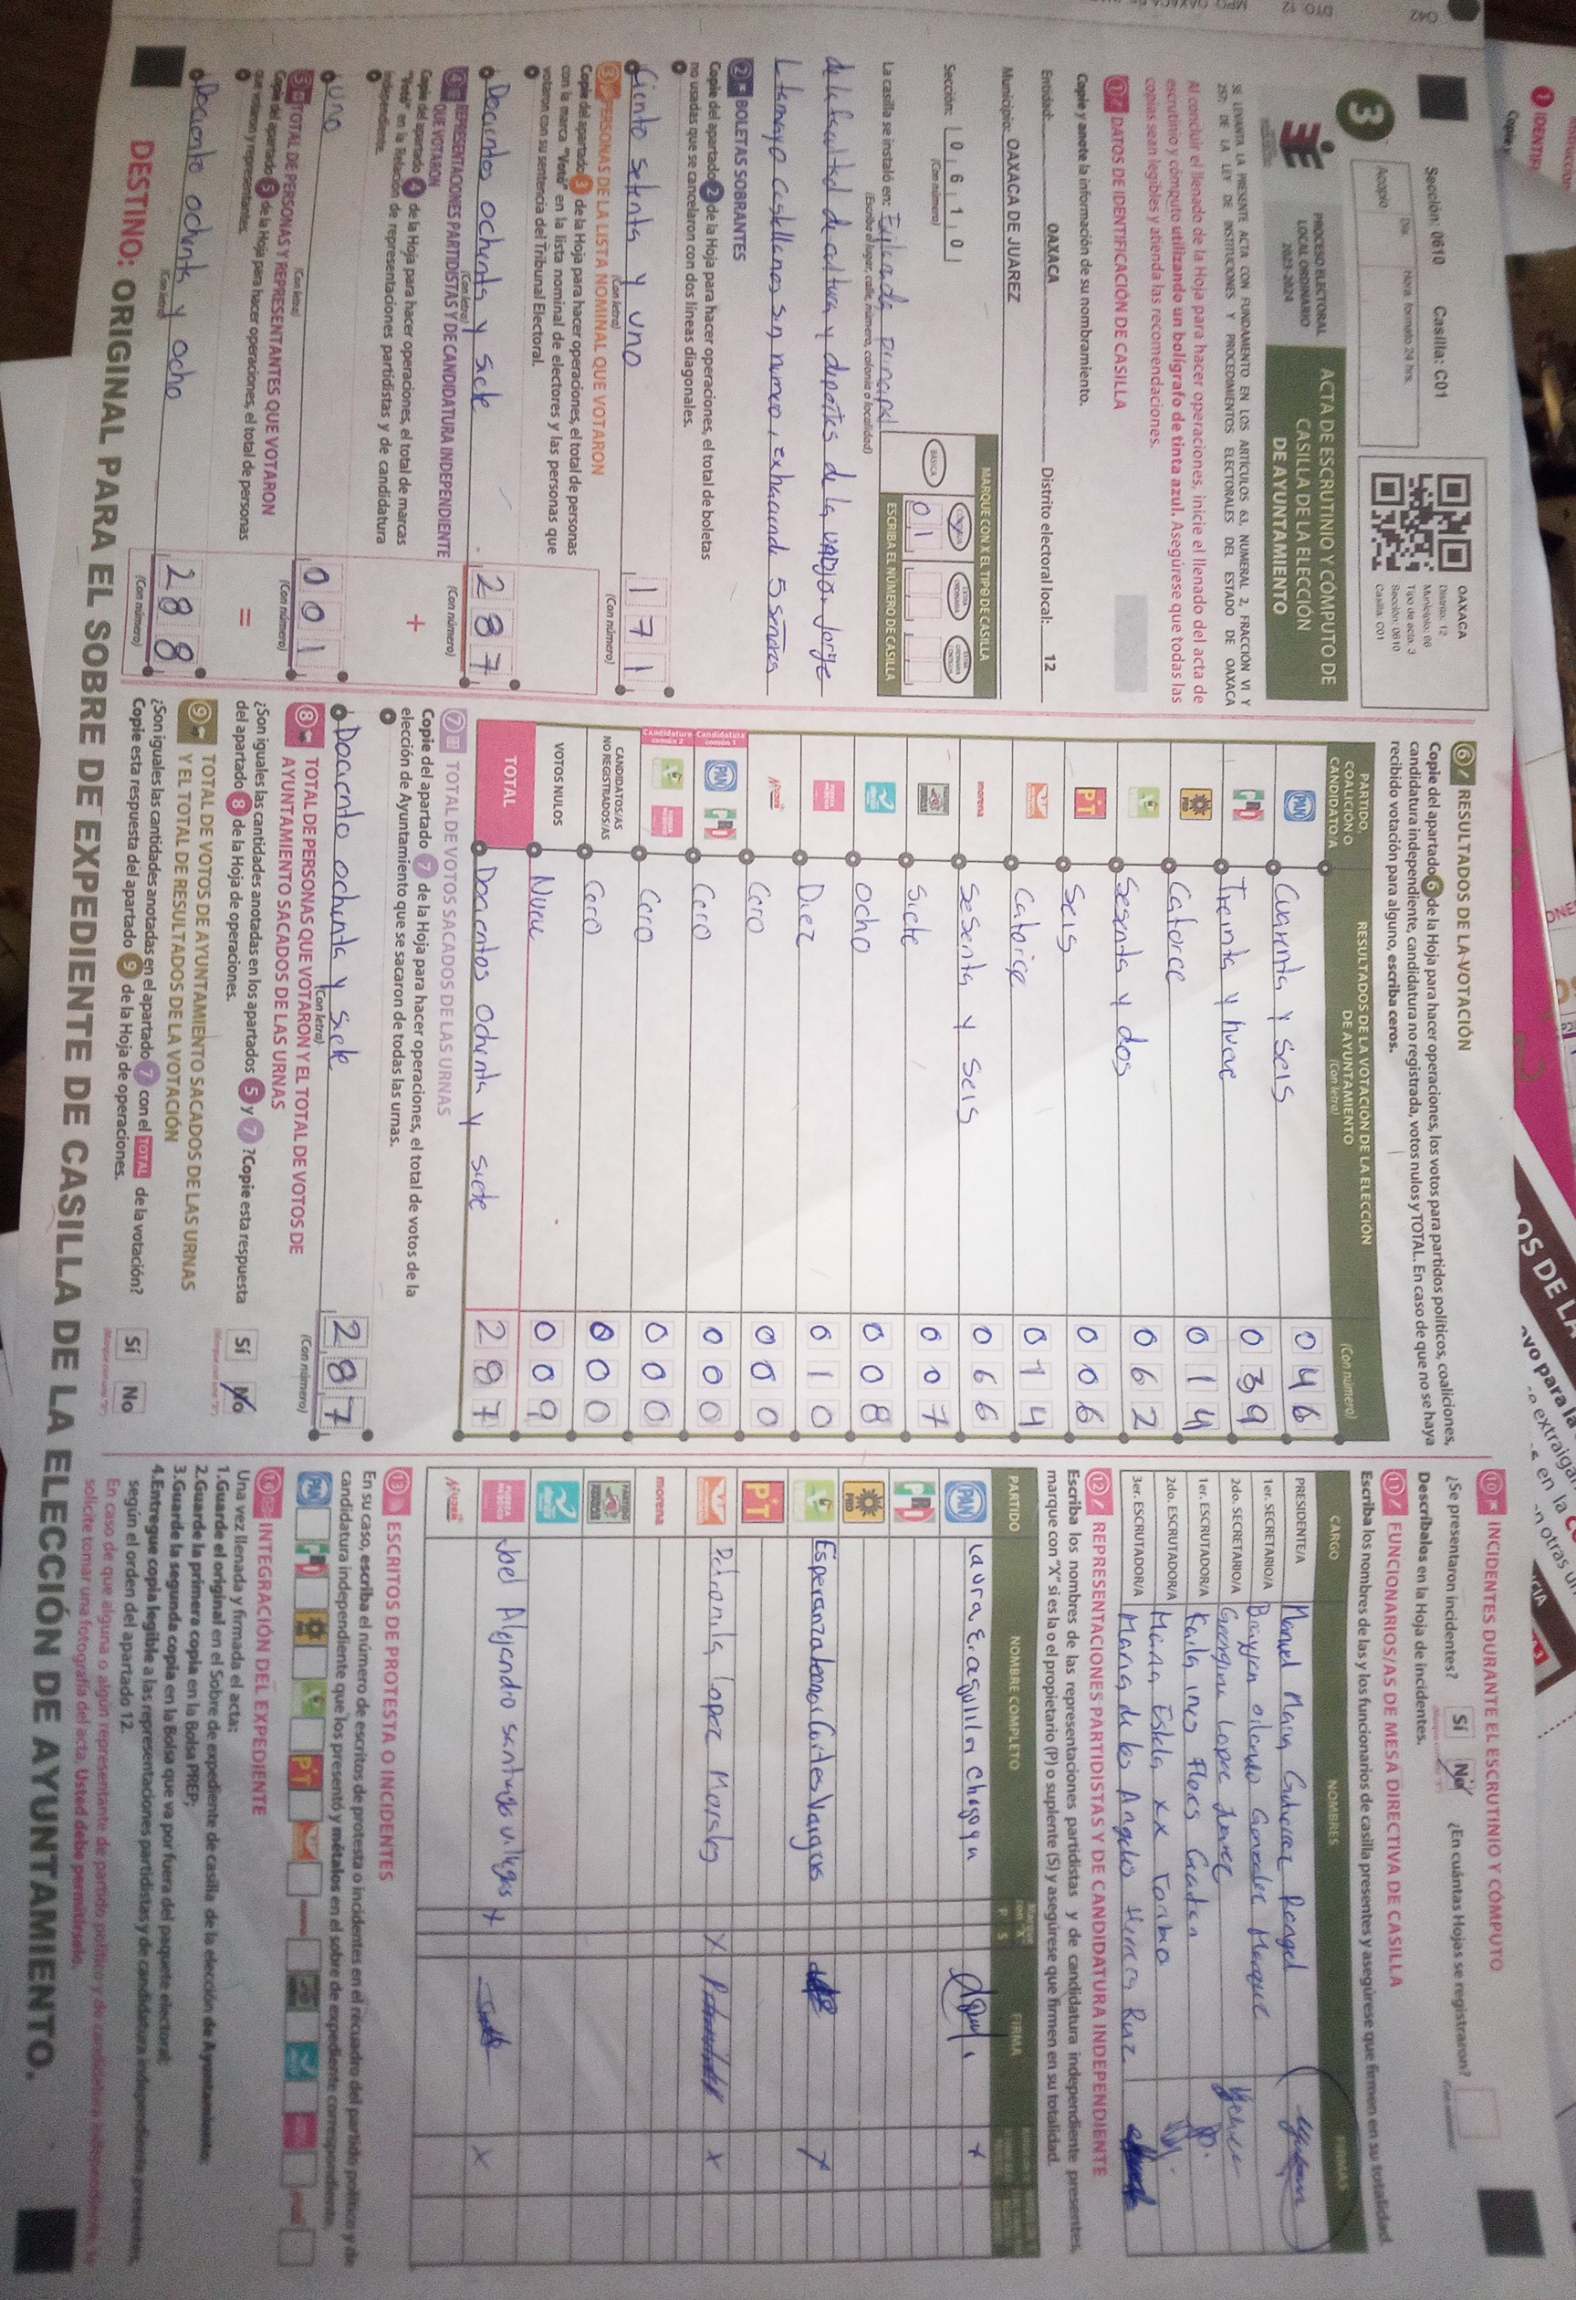 Sección: 0610 Casilla: C01
Día Hora formato 24 hrs.
Acopio
3
OAXACA
Distrito: 12
Tipo de acta: 3
Casilla: C01
PROCESO ELECTORAL
LOCAL ORDINARIO
2023-2024
ACTA DE ESCRUTINIO Y CÓMPUTO DE
CASILLA DE LA ELECCIÓN
DE AYUNTAMIENTO
SE LEVANTA LA PRESENTE ACTA CON FUNDAMENTO EN LOS ARTÍCULOS 63, NUMERAL 2, FRACCIÓN VI Y
257; DE LA LEY DE INSTITUCIONES Y PROCEDIMIENTOS ELECTORALES DEL ESTADO DE OAXACA
Al concluir el llenado de la Hoja para hacer operaciones, inicie el llenado del acta de
escrutinio y cómputo utilizando un bolígrafo de tinta azul. Asegúrese que todas las
copias sean legibles y atienda las recomendaciones.
1 DATOS DE IDENTIFICACIÓN DE CASILLA
Copie y anote la información de su nombramiento.
Entidad: OAXACA Distrito electoral local: 12
Municipio: OAXACA DE JUAREZ
Sección: 0 6 1 0
(Con número)
MARQUE CON X EL TIPO DE CASILLA
BÁSICA
ESCRIBA EL NÚMERO DE CASILLA
0 1
La casilla se instaló en: Explanada principal
(Escriba el lugar, calle, número, colonia o localidad)
de la facultad de cultura y deportes de la UABJO, Jorge
L tamayo Castellanos sin numero, Exhacienda 5 señores
2 BOLETAS SOBRANTES
Copie del apartado 2 de la Hoja para hacer operaciones, el total de boletas
no usadas que se cancelaron con dos líneas diagonales.
Ciento setenta y uno 171
(Con letra) (Con número)
3 PERSONAS DE LA LISTA NOMINAL QUE VOTARON
Copie del apartado 3 de la Hoja para hacer operaciones, el total de personas
con la marca "Votó" en la lista nominal de electores y las personas que
votaron con su sentencia del Tribunal Electoral.
Docientos ochenta y siete 287
(Con letra) (Con número)
4 REPRESENTACIONES PARTIDISTAS Y DE CANDIDATURA INDEPENDIENTE
QUE VOTARON
Copie del apartado 4 de la Hoja para hacer operaciones, el total de marcas
"Votó" en la Relación de representaciones partidistas y de candidatura
independiente.
+
uno 001
(Con letra) (Con número)
5 TOTAL DE PERSONAS Y REPRESENTANTES QUE VOTARON
Copie del apartado 5 de la Hoja para hacer operaciones, el total de personas
que votaron y representantes.
=
Dociento ochenta y ocho 288
(Con letra) (Con número)
6 RESULTADOS DE LA VOTACIÓN
Copie del apartado 6 de la Hoja para hacer operaciones, los votos para partidos políticos, coaliciones,
candidatura independiente, candidatura no registrada, votos nulos y TOTAL. En caso de que no se haya
recibido votación para alguno, escriba ceros.
PARTIDO,
COALICIÓN O
CANDIDATO/A
RESULTADOS DE LA VOTACIÓN DE LA ELECCIÓN
DE AYUNTAMIENTO
(Con letra) (Con número)
PAN Cuarenta y seis 046
PRI Treinta y nueve 039
PRD Catorce 014
Sesenta y dos 062
PT Seis 006
Catorce 014
morena Sesenta y seis 066
Siete 007
ocho 008
Diez 010
Cero 000
Candidatura común 1 PAN PRI Cero 000
Candidatura común 2 Cero 000
CANDIDATOS/AS
NO REGISTRADOS/AS Cero 000
VOTOS NULOS Nueve 009
TOTAL Docientos ochenta y siete 287
7 TOTAL DE VOTOS SACADOS DE LAS URNAS
Copie del apartado 7 de la Hoja para hacer operaciones, el total de votos de la
elección de Ayuntamiento que se sacaron de todas las urnas.
Dociento ochenta y siete 287
(Con letra) (Con número)
8 TOTAL DE PERSONAS QUE VOTARON Y EL TOTAL DE VOTOS DE
AYUNTAMIENTO SACADOS DE LAS URNAS
¿Son iguales las cantidades anotadas en los apartados 5 y 7? Copie esta respuesta
del apartado 8 de la Hoja de operaciones.
Sí No
9 TOTAL DE VOTOS DE AYUNTAMIENTO SACADOS DE LAS URNAS
Y EL TOTAL DE RESULTADOS DE LA VOTACIÓN
¿Son iguales las cantidades anotadas en el apartado 7 con el TOTAL de la votación?
Copie esta respuesta del apartado 9 de la Hoja de operaciones.
Sí No
10 INCIDENTES DURANTE EL ESCRUTINIO Y CÓMPUTO
¿Se presentaron incidentes? Sí No ¿En cuántas Hojas se registraron?
Descríbalos en la Hoja de incidentes.
11 FUNCIONARIOS/AS DE MESA DIRECTIVA DE CASILLA
Escriba los nombres de las y los funcionarios de casilla presentes y asegúrese que firmen en su totalidad.
CARGO NOMBRES FIRMAS
PRESIDENTE/A Manuel Rangel
1er. SECRETARIO/A
2do. SECRETARIO/A Lopez
1er. ESCRUTADOR/A Karla Ines Flores
2do. ESCRUTADOR/A Maria Estela XX Toribio
3er. ESCRUTADOR/A Maria de los Angeles Ruiz
12 REPRESENTACIONES PARTIDISTAS Y DE CANDIDATURA INDEPENDIENTE
Escriba los nombres de las representaciones partidistas y de candidatura independiente presentes,
marque con "X" si es la o el propietario (P) o suplente (S) y asegúrese que firmen en su totalidad.
PARTIDO NOMBRE COMPLETO P S FIRMA
PAN Laura E. aguilar Chagoya X
PRI
PRD
Esperanza Cortes Vargas X
PT
Petronila Lopez Morales X X
morena
Joel Alejandro santiago villegas X X
13 ESCRITOS DE PROTESTA O INCIDENTES
En su caso, escriba el número de escritos de protesta o incidentes en el recuadro del partido político y de
candidatura independiente que los presentó y métalos en el sobre de expediente correspondiente.
14 INTEGRACIÓN DEL EXPEDIENTE
Una vez llenada y firmada el acta:
1.Guarde el original en el Sobre de expediente de casilla de la elección de Ayuntamiento;
2.Guarde la primera copia en la Bolsa PREP;
3.Guarde la segunda copia en la Bolsa que va por fuera del paquete electoral;
4.Entregue copia legible a las representaciones partidistas y de candidatura independiente presentes,
según el orden del apartado 12.
En caso de que alguna o algún representante de partido político y de candidatura independiente, le
solicite tomar una fotografía del acta, Usted debe permitírselo.
DESTINO: ORIGINAL PARA EL SOBRE DE EXPEDIENTE DE CASILLA DE LA ELECCIÓN DE AYUNTAMIENTO.